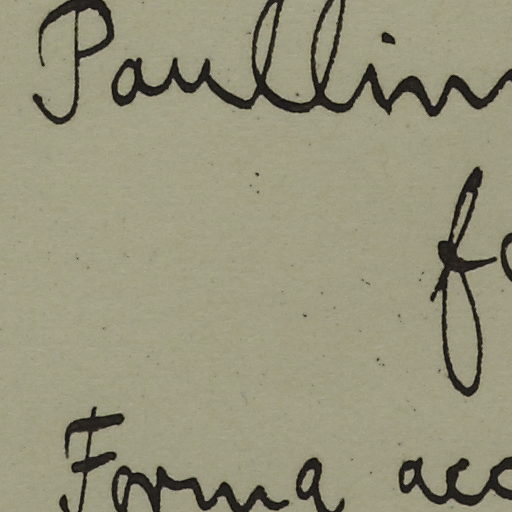 Paullin
f
Forma acc